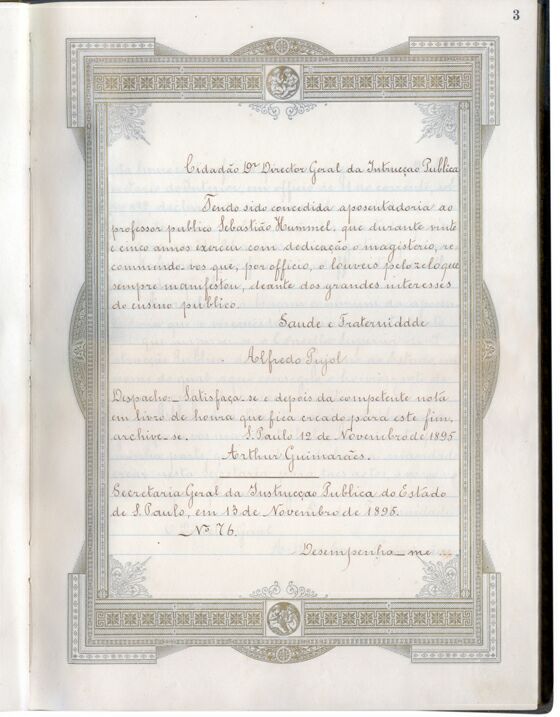 3
Cidadão Dr Director Geral da Intrucção Publica
Tendo sido concedida aposentadoria ao
professor publico Sebastião Hummel, que durante vinte
e cinco annos exerceu com dedicação o magisterio, re
commendo-vos que, por officio, o louveis pelo zelo que
sempre manifestou, deante dos grandes interesses
do ensino publico.
Saude e Fraterniddde
Alfredo Pujol
Despacho:— Satisfaça-se e depois da competente nota
em livro de honra que fica creado para este fim,
archive-se. S. Paulo 12 de Novembro de 1895
Arthur Guimarães.
Secretaria Geral da Instrucção Publica do Estado
de S. Paulo, em 13 de Novembro de 1895.
Nº 76.
Desempenha-me